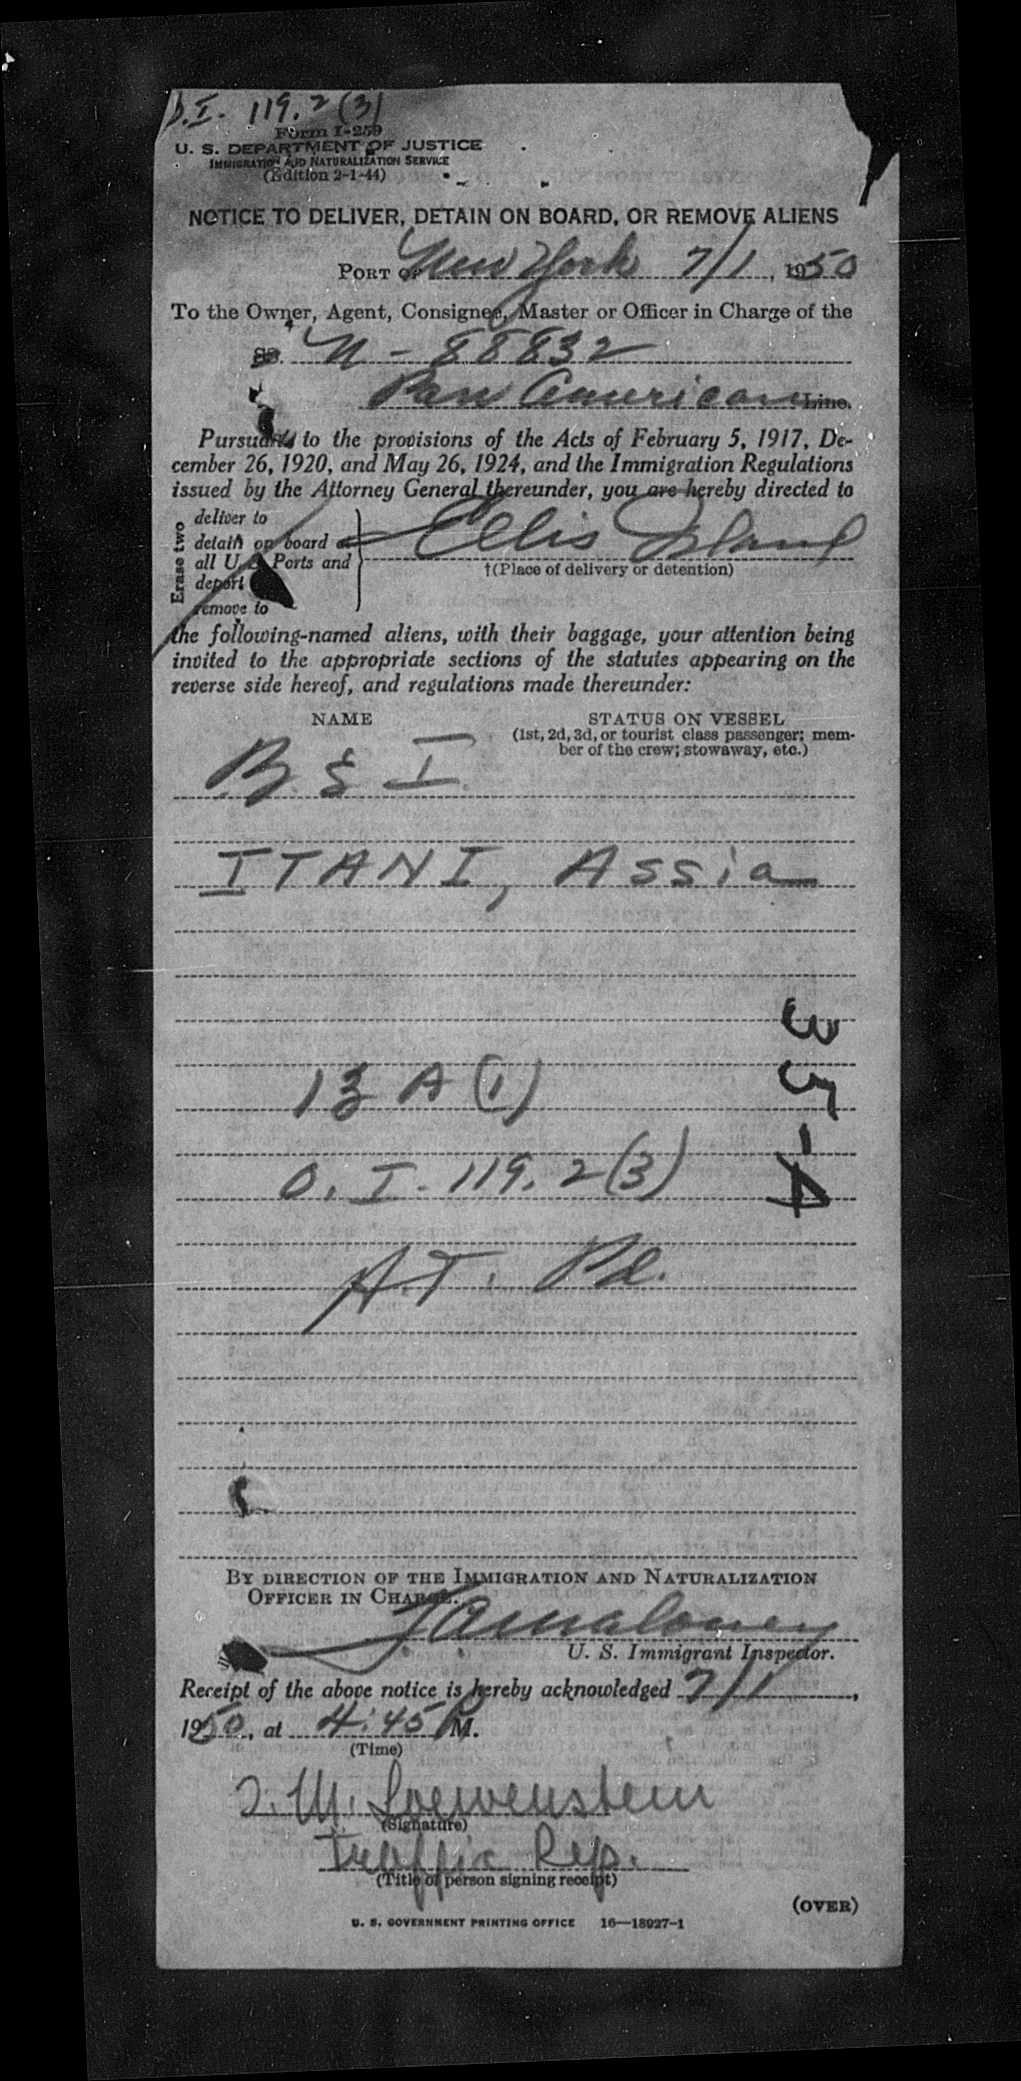 D.I. 119.2(3)
Form I-259
U. S. DEPARTMENT OF JUSTICE
IMMIGRATION AND NATURALIZATION SERVICE
(Edition 2-1-44)
NOTICE TO DELIVER, DETAIN ON BOARD, OR REMOVE ALIENS
PORT OF New York 7/1, 1950
To the Owner, Agent, Consignee, Master or Officer in Charge of the
SS. N-88832
Pan American Line.
Pursuant to the provisions of the Acts of February 5, 1917, De-
cember 26, 1920, and May 26, 1924, and the Immigration Regulations
issued by the Attorney General thereunder, you are hereby directed to
Erase two
deliver to
detain on board at
all U. S. Ports and
deport
remove to
Ellis Island
†(Place of delivery or detention)
the following-named aliens, with their baggage, your attention being
invited to the appropriate sections of the statutes appearing on the
reverse side hereof, and regulations made thereunder:
NAME STATUS ON VESSEL
(1st, 2d, 3d, or tourist class passenger; mem-
ber of the crew; stowaway, etc.)
B & I
ITANI, Assia
35-A
13 A (1)
O. I. 119.2(3)
A.T. Pd.
BY DIRECTION OF THE IMMIGRATION AND NATURALIZATION
OFFICER IN CHARGE.
Maloney
U. S. Immigrant Inspector.
Receipt of the above notice is hereby acknowledged 7/1,
1950, at 4:45 PM.
(Time)
Loewenstein
(Signature)
Traffic Rep.
(Title of person signing receipt)
(OVER)
U. S. GOVERNMENT PRINTING OFFICE 16—18927-1